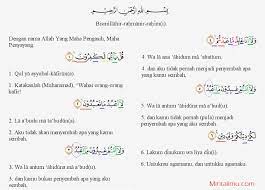 بِسْمِ اللّٰهِ الرَّحْمٰنِ الرَّحِيْمِ
Bismillāhir-raḥmānir-raḥīm(i).
Dengan nama Allah Yang Maha Pengasih, Maha
Penyayang.
قُلْ يٰٓاَيُّهَا الْكٰفِرُوْنَ
1. Qul yā ayyuhal-kāfirūn(a).
1. Katakanlah (Muhammad), "Wahai orang-orang
kafir!
لَآ اَعْبُدُ مَا تَعْبُدُوْنَ
2. Lā a'budu mā ta'budūn(a).
2. Aku tidak akan menyembah apa yang kamu
sembah,
وَلَآ اَنْتُمْ عٰبِدُوْنَ مَآ اَعْبُدُ
3. Wa lā antum 'ābidūna mā a'bud(u).
3. dan kamu bukan penyembah apa yang aku
sembah,
وَلَآ اَنَا۠ عَابِدٌ مَّا عَبَدْتُّمْ
4. Wa lā ana 'ābidum mā 'abattum.
4. dan aku tidak pernah menjadi penyembah apa
yang kamu sembah,
وَلَآ اَنْتُمْ عٰبِدُوْنَ مَآ اَعْبُدُ
5. Wa lā antum 'ābidūna mā a'bud(u).
5. dan kamu tidak pernah (pula) menjadi
penyembah apa yang aku sembah.
لَكُمْ دِيْنُكُمْ وَلِيَ دِيْنِ
6. Lakum dīnukum wa liya dīn(i).
6. Untukmu agamamu, dan untukku agamaku.
Mintailmu.com